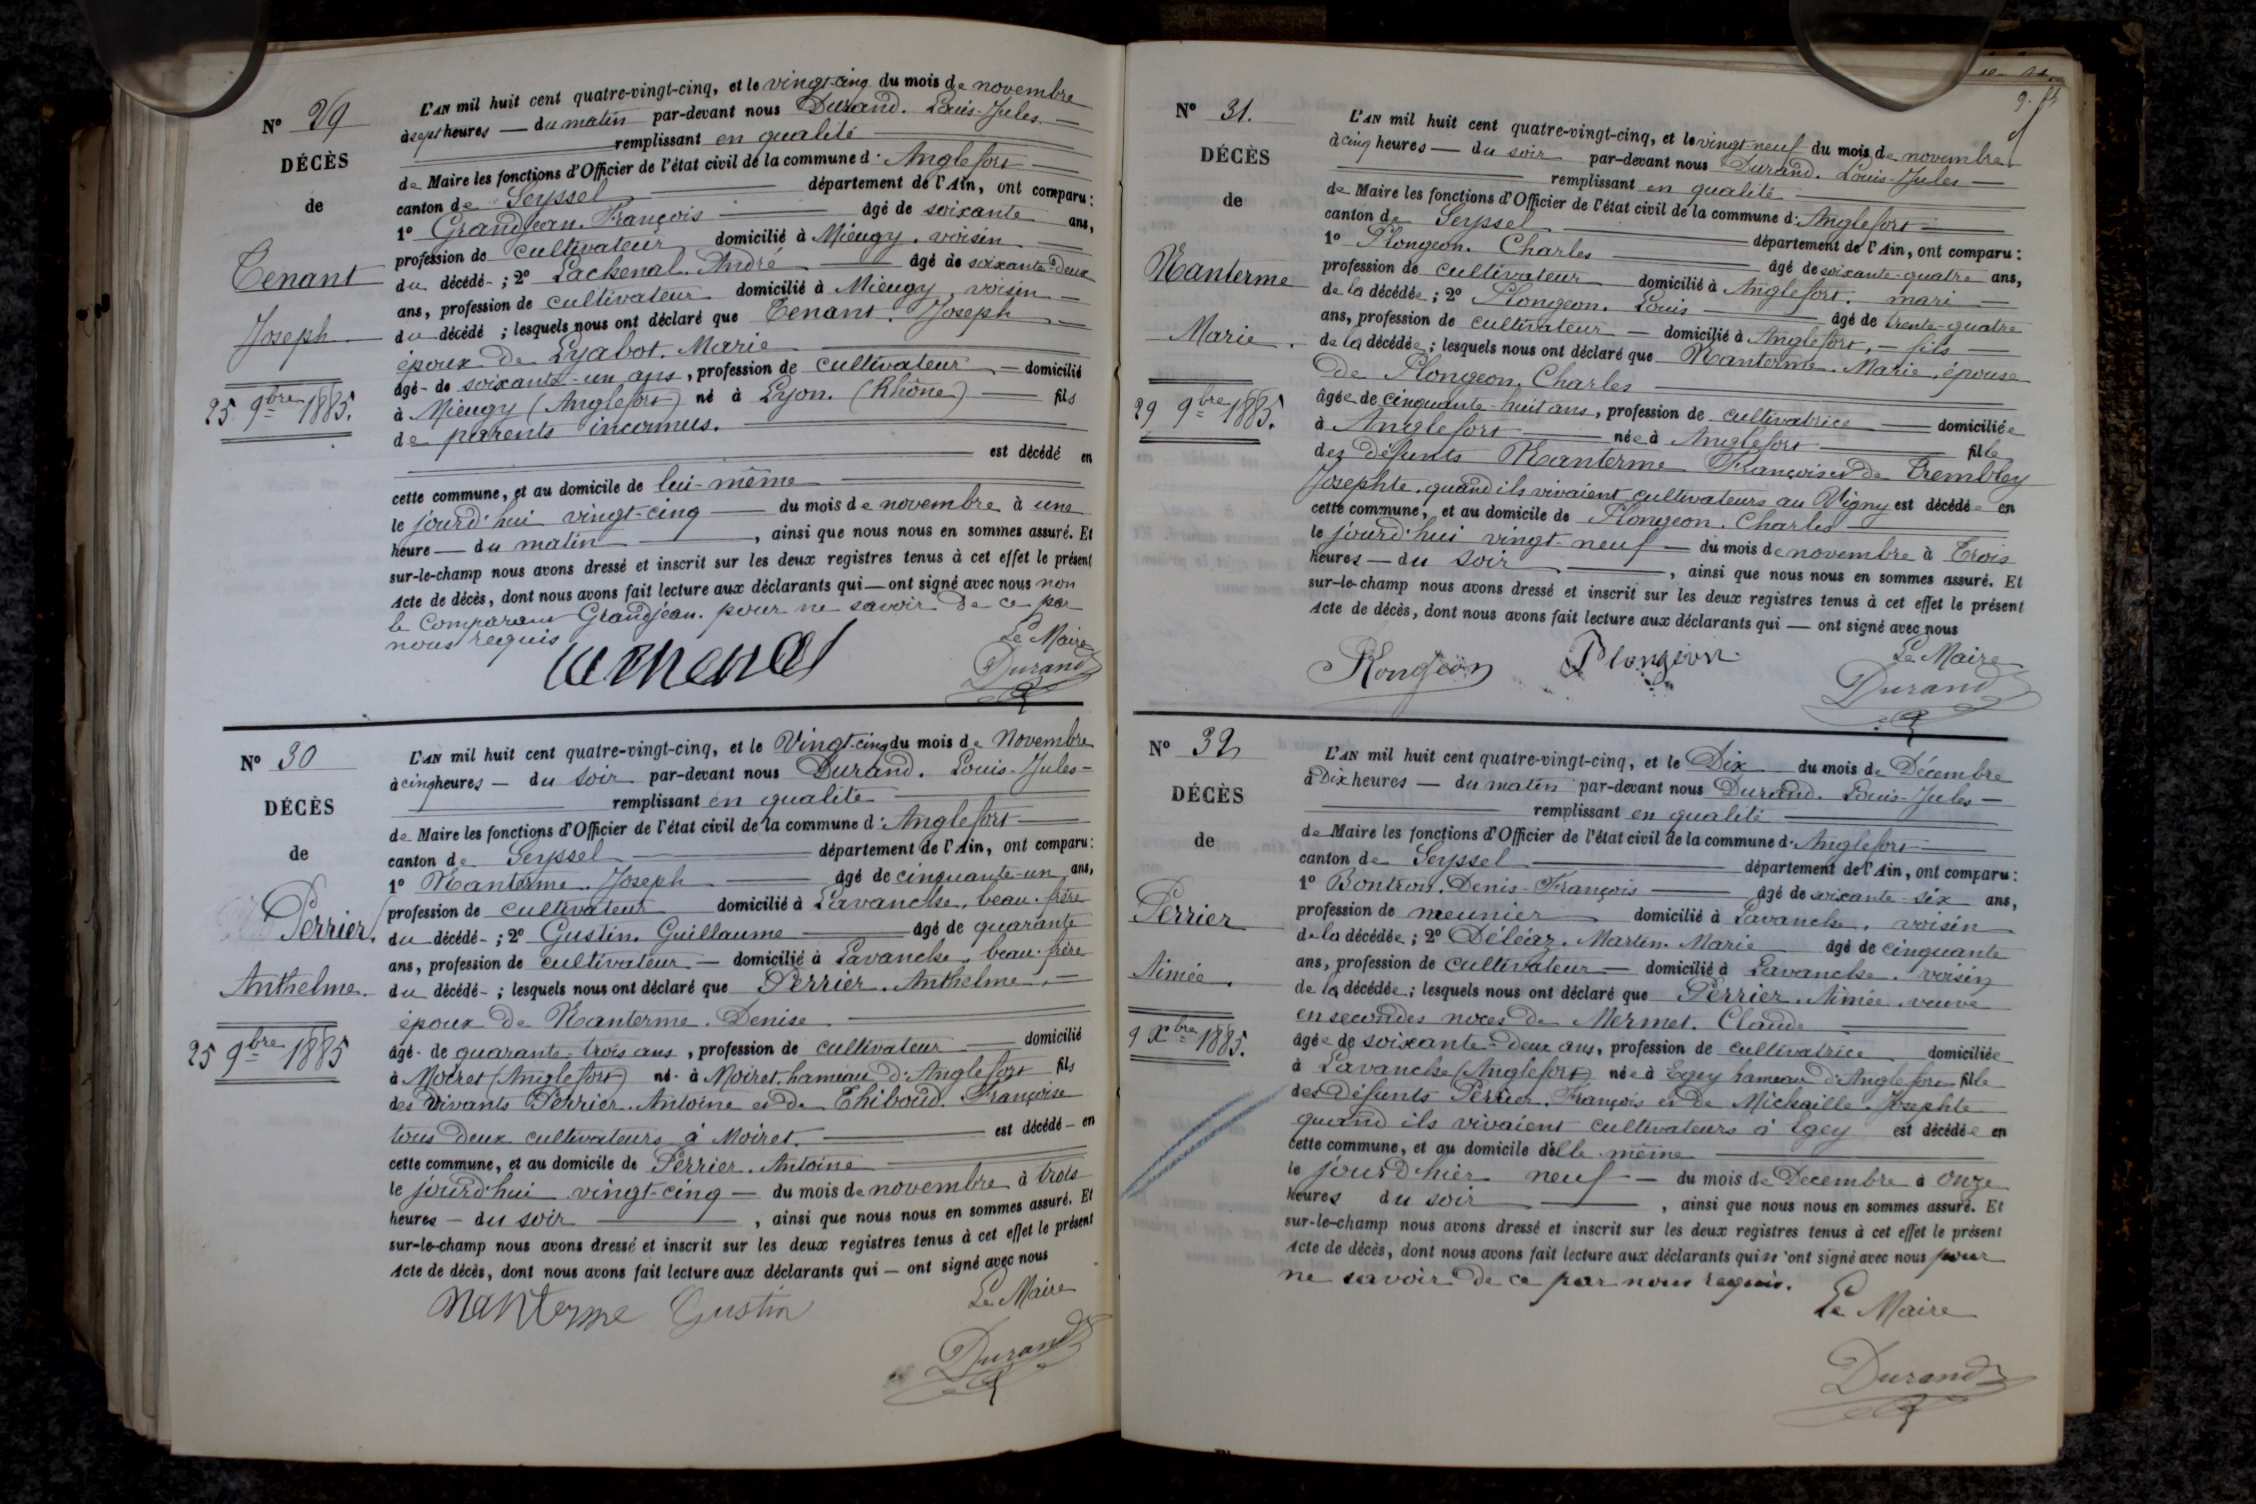 N° 29
DÉCÈS
de
Tenant
Joseph
25 9bre 1885.
L'AN mil huit cent quatre-vingt-cinq, et le vingt-cinq du mois de novembre
à sept heures — du matin par-devant nous Durand. Louis-Jules —
remplissant en qualité
de Maire les fonctions d'Officier de l'état civil de la commune d'Anglefort
canton de Seyssel département de l'Ain, ont comparu :
1° Grandjean. François âgé de soixante ans,
profession de cultivateur domicilié à Mieugy. voisin
du décédé - ; 2° Lachenal. André âgé de soixante-deux
ans, profession de cultivateur domicilié à Mieugy, voisin —
du décédé ; lesquels nous ont déclaré que Tenant. Joseph —
époux de Lyabot. Marie
âgé - de soixante-un ans, profession de cultivateur — domicilié
à Mieugy (Anglefort) né à Lyon. (Rhône) — fils
de parents inconnus.
est décédé en
cette commune, et au domicile de lui-même
le jourd'hui vingt-cinq — du mois de novembre à une
heure — du matin , ainsi que nous nous en sommes assuré. Et
sur-le-champ nous avons dressé et inscrit sur les deux registres tenus à cet effet le présent
Acte de décès, dont nous avons fait lecture aux déclarants qui — ont signé avec nous non
le Comparant Grandjean. pour ne savoir de ce par
nous requis
Le Maire
Lachenal
Durand
N° 30
DÉCÈS
de
Perrier.
Anthelme.
25 9bre 1885
L'AN mil huit cent quatre-vingt-cinq, et le Vingt-cinq du mois de Novembre
à cinq heures — du soir par-devant nous Durand. Louis-Jules -
remplissant en qualité
de Maire les fonctions d'Officier de l'état civil de la commune d'Anglefort
canton de Seyssel département de l'Ain, ont comparu :
1° Nanterme. Joseph âgé de cinquante-un ans,
profession de cultivateur domicilié à Lavanche, beau-frère
du décédé - ; 2° Gustin. Guillaume âgé de quarante
ans, profession de cultivateur — domicilié à Lavanche, beau-frère
du décédé - ; lesquels nous ont déclaré que Perrier. Anthelme. —
époux de Nanterme. Denise.
âgé - de quarante-trois ans, profession de cultivateur — domicilié
à Moiret (Anglefort) né - à Moiret. hameau d'Anglefort fils
des vivants Perrier. Antoine et de Thiboud. Françoise
tous deux cultivateurs à Moiret. est décédé - en
cette commune, et au domicile de Perrier. Antoine
le jourd'hui vingt-cinq — du mois de novembre à trois
heures — du soir , ainsi que nous nous en sommes assuré. Et
sur-le-champ nous avons dressé et inscrit sur les deux registres tenus à cet effet le présent
Acte de décès, dont nous avons fait lecture aux déclarants qui — ont signé avec nous
Le Maire
Nanterme Gustin
Durand
N° 31.
DÉCÈS
de
Nanterme
Marie.
29 9bre 1885.
L'AN mil huit cent quatre-vingt-cinq, et le vingt-neuf du mois de novembre
à cinq heures — du soir par-devant nous Durand. Louis-Jules —
remplissant en qualité
de Maire les fonctions d'Officier de l'état civil de la commune d'Anglefort
canton de Seyssel département de l'Ain, ont comparu :
1° Plongeon. Charles âgé de soixante-quatre ans,
profession de cultivateur domicilié à Anglefort. mari —
de la décédée ; 2° Plongeon. Louis âgé de trente-quatre
ans, profession de cultivateur — domicilié à Anglefort. — fils —
de la décédée ; lesquels nous ont déclaré que Nanterme. Marie, épouse
de Plongeon. Charles
âgée de cinquante-huit ans, profession de cultivatrice — domiciliée
à Anglefort née à Anglefort fille
des défunts Nanterme François et de Trembley
Josephte. quand ils vivaient cultivateurs au Vigny est décédée en
cette commune, et au domicile de Plongeon. Charles
le jourd'hui vingt-neuf — du mois de novembre à Trois
heures — du soir , ainsi que nous nous en sommes assuré. Et
sur-le-champ nous avons dressé et inscrit sur les deux registres tenus à cet effet le présent
Acte de décès, dont nous avons fait lecture aux déclarants qui — ont signé avec nous
Le Maire
Plongeon Plongeon
Durand
N° 32
DÉCÈS
de
Perrier
Aimée.
9 Xbre 1885.
L'AN mil huit cent quatre-vingt-cinq, et le Dix du mois de Décembre
à Dix heures — du matin par-devant nous Durand. Louis-Jules —
remplissant en qualité
de Maire les fonctions d'Officier de l'état civil de la commune d'Anglefort
canton de Seyssel département de l'Ain, ont comparu :
1° Bontron. Denis-François âgé de soixante-six ans,
profession de meunier domicilié à Lavanche, voisin
de la décédée ; 2° Déléaz. Martin. Marie âgé de cinquante
ans, profession de cultivateur — domicilié à Lavanche. voisin
de la décédée ; lesquels nous ont déclaré que Perrier. Aimée. veuve
en secondes noces de Mermet. Claude
âgée de soixante-deux ans, profession de cultivatrice domiciliée
à Lavanche (Anglefort) née à Egey hameau d'Anglefort fille
des défunts Perrier. François et de Michaille. Josephte
quand ils vivaient cultivateurs à Egey est décédée en
cette commune, et au domicile d'elle même
le jourd'hier neuf — du mois de Décembre à Onze
heures du soir , ainsi que nous nous en sommes assuré. Et
sur-le-champ nous avons dressé et inscrit sur les deux registres tenus à cet effet le présent
Acte de décès, dont nous avons fait lecture aux déclarants qui n'ont signé avec nous pour
ne savoir de ce par nous requis.
Le Maire
Durand